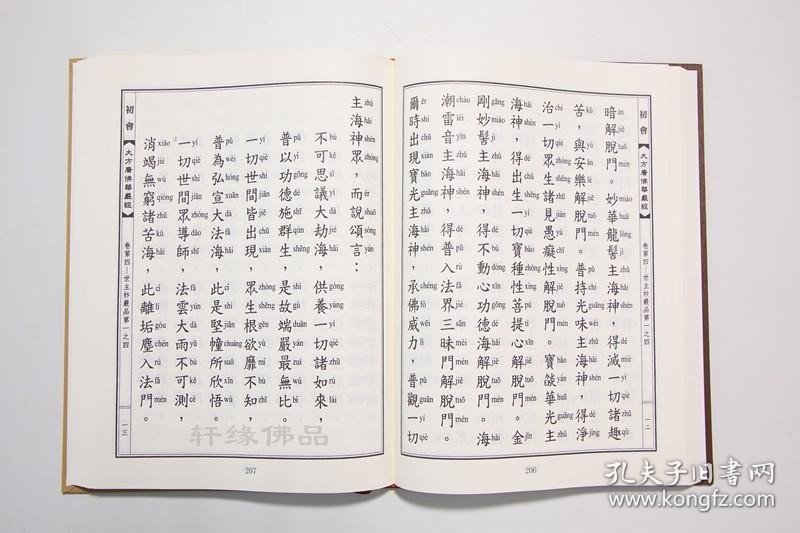 初會
大方廣佛華嚴經
卷第四—世主妙嚴品第一之四
一二
暗解脫門。妙華龍髻主海神，得滅一切諸趣
苦，與安樂解脫門。普持光味主海神，得淨
治一切眾生諸見愚癡性解脫門。寶燄華光主
海神，得出生一切寶種性菩提心解脫門。金
剛妙髻主海神，得不動心功德海解脫門。海
潮雷音主海神，得普入法界三昧門解脫門。
爾時出現寶光主海神，承佛威力，普觀一切
206
主海神眾，而說頌言：
不可思議大劫海，供養一切諸如來，
普以功德施群生，是故端嚴最無比。
一切世間皆出現，眾生根欲靡不知，
普為弘宣大法海，此是堅幢所欣悟。
一切世間眾導師，法雲大雨不可測，
消竭無窮諸苦海，此離垢塵入法門。
初會
大方廣佛華嚴經
卷第四—世主妙嚴品第一之四
一三
207
轩缘佛品
孔夫子旧书网
www.kongfz.com